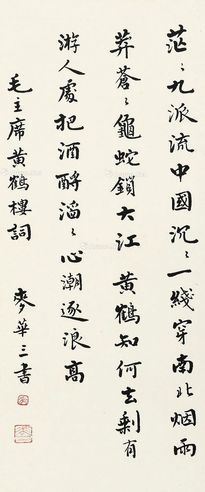 茫〻九派流中國沉〻一綫穿南北烟雨
莽蒼〻龜蛇鎖大江黃鶴知何去剩有
游人處把酒酹滔〻心潮逐浪高
毛主席黃鶴樓詞
麥華三書